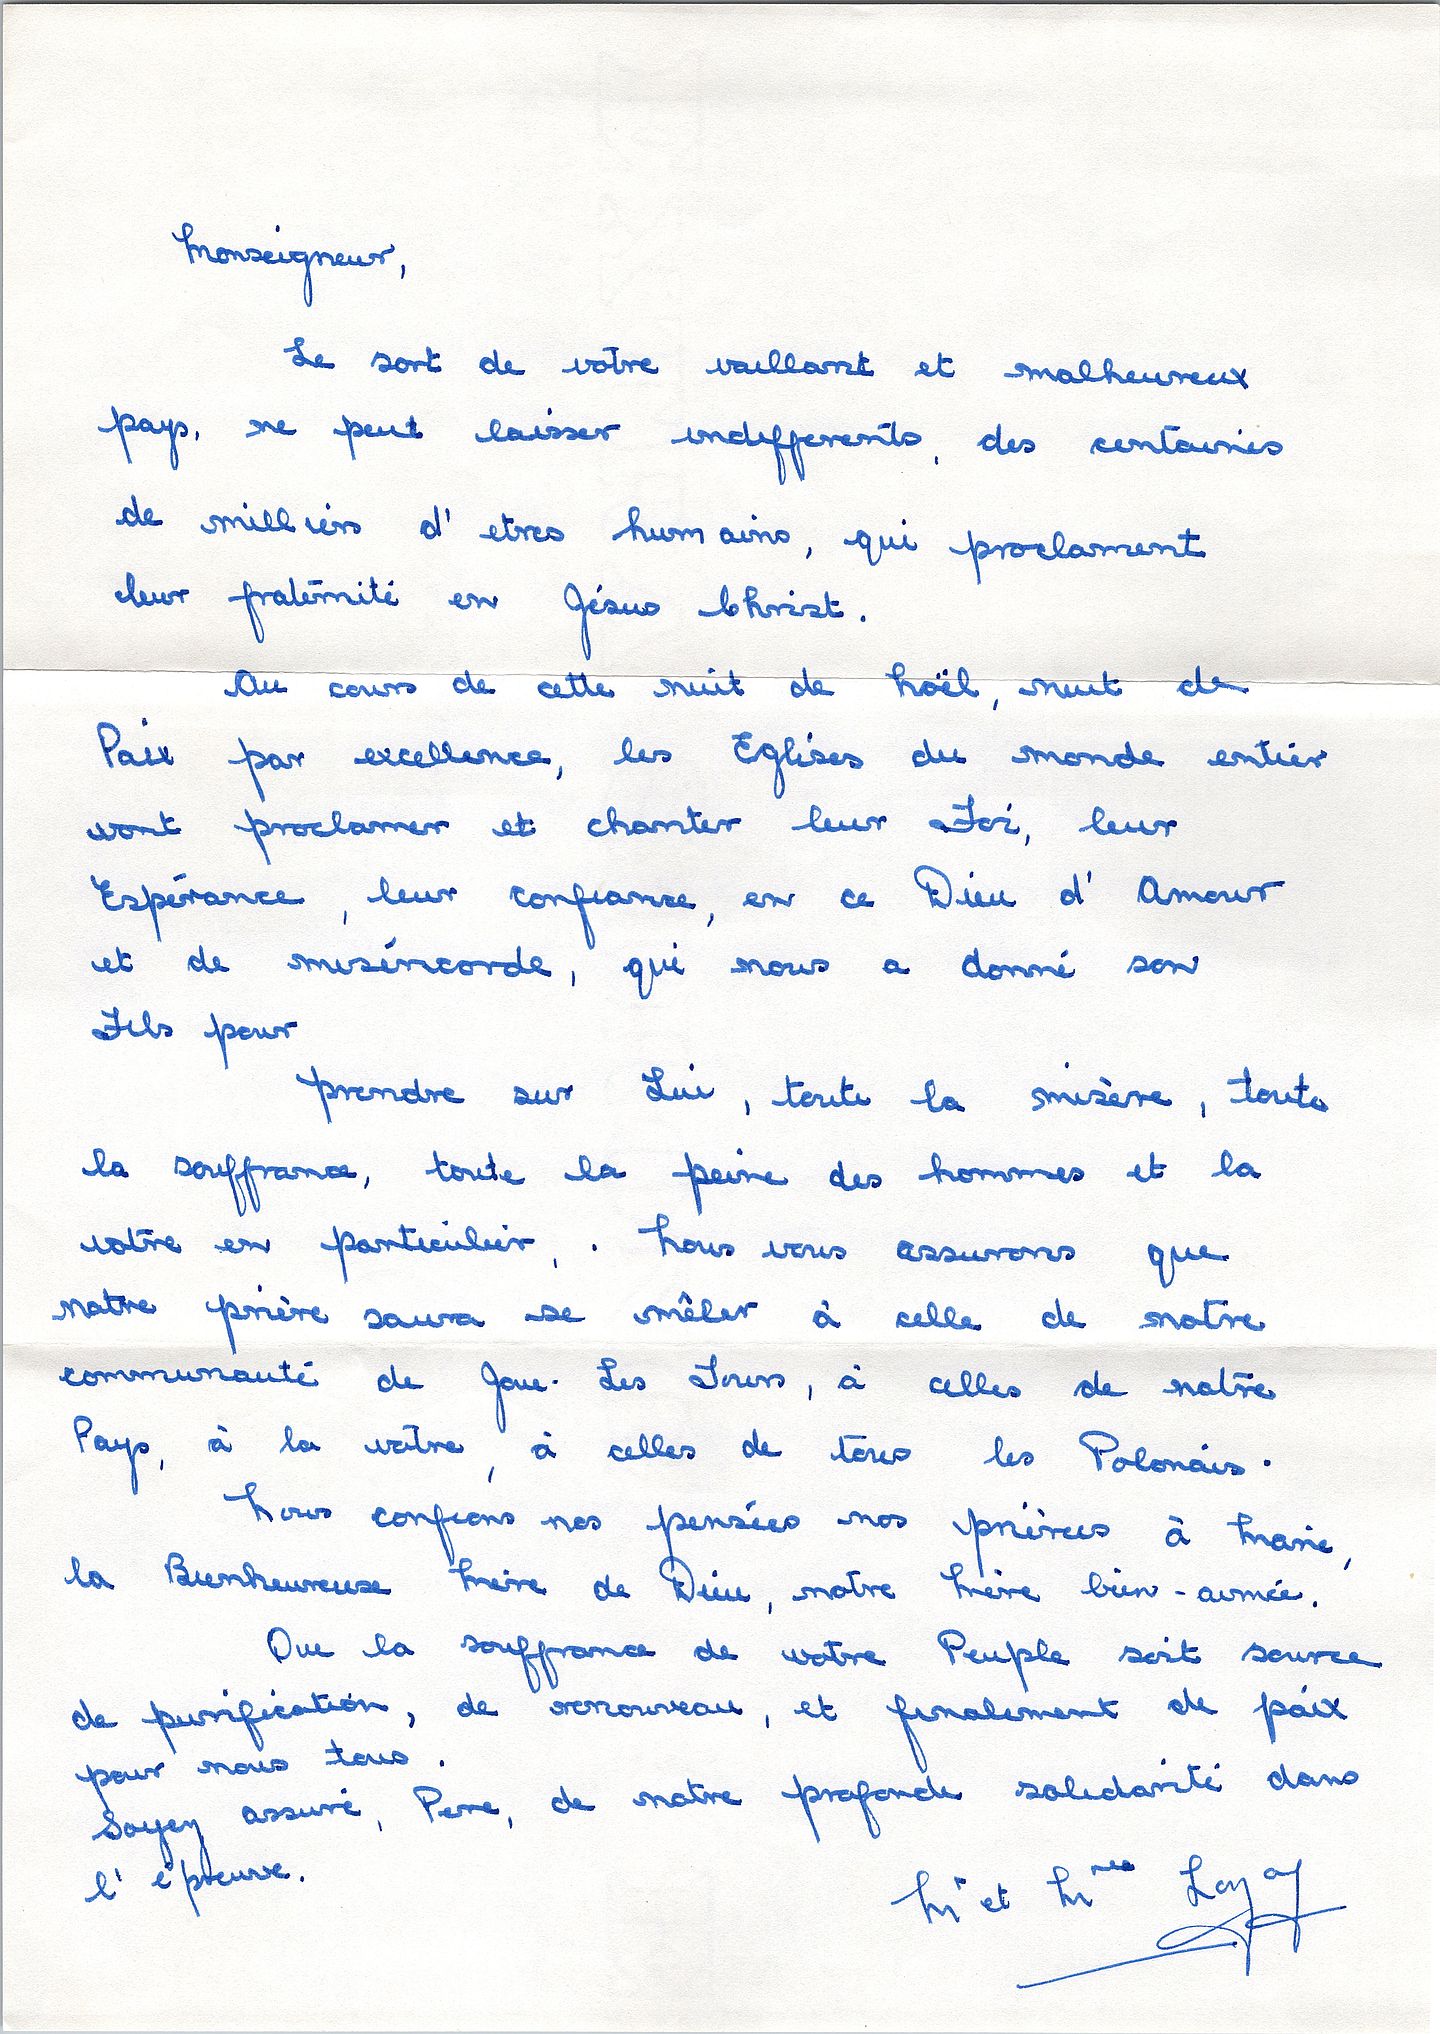 Monseigneur,
Le sort de votre vaillant et malheureux
pays, ne peut laisser indifferents, des centaines
de milliers d'etres humains, qui proclament
leur fraternité en Jésus Christ.
Au cours de cette nuit de Noël, nuit de
Paix par excellence, les Eglises du monde entier
vont proclamer et chanter leur Foi, leur
Espérance, leur confiance, en ce Dieu d'Amour
et de miséricorde, qui nous a donné son
Fils pour
prendre sur Lui, toute la misère, toute
la souffrance, toute la peine des hommes et la
votre en particulier,. Nous vous assurons que
notre prière saura se mêler à celle de notre
communauté de Joue-Les Tours, à celles de notre
Pays, à la votre, à celles de tous les Polonais.
Nous confions nos pensées nos prières à Marie,
la Bienheureuse Mère de Dieu, notre Mère bien-aimée.
Que la souffrance de votre Peuple soit source
de purification, de renouveau, et finalement de paix
pour nous tous.
Soyez assuré, Pere, de notre profonde solidarité dans
l'épreuve.
Mr et Mme